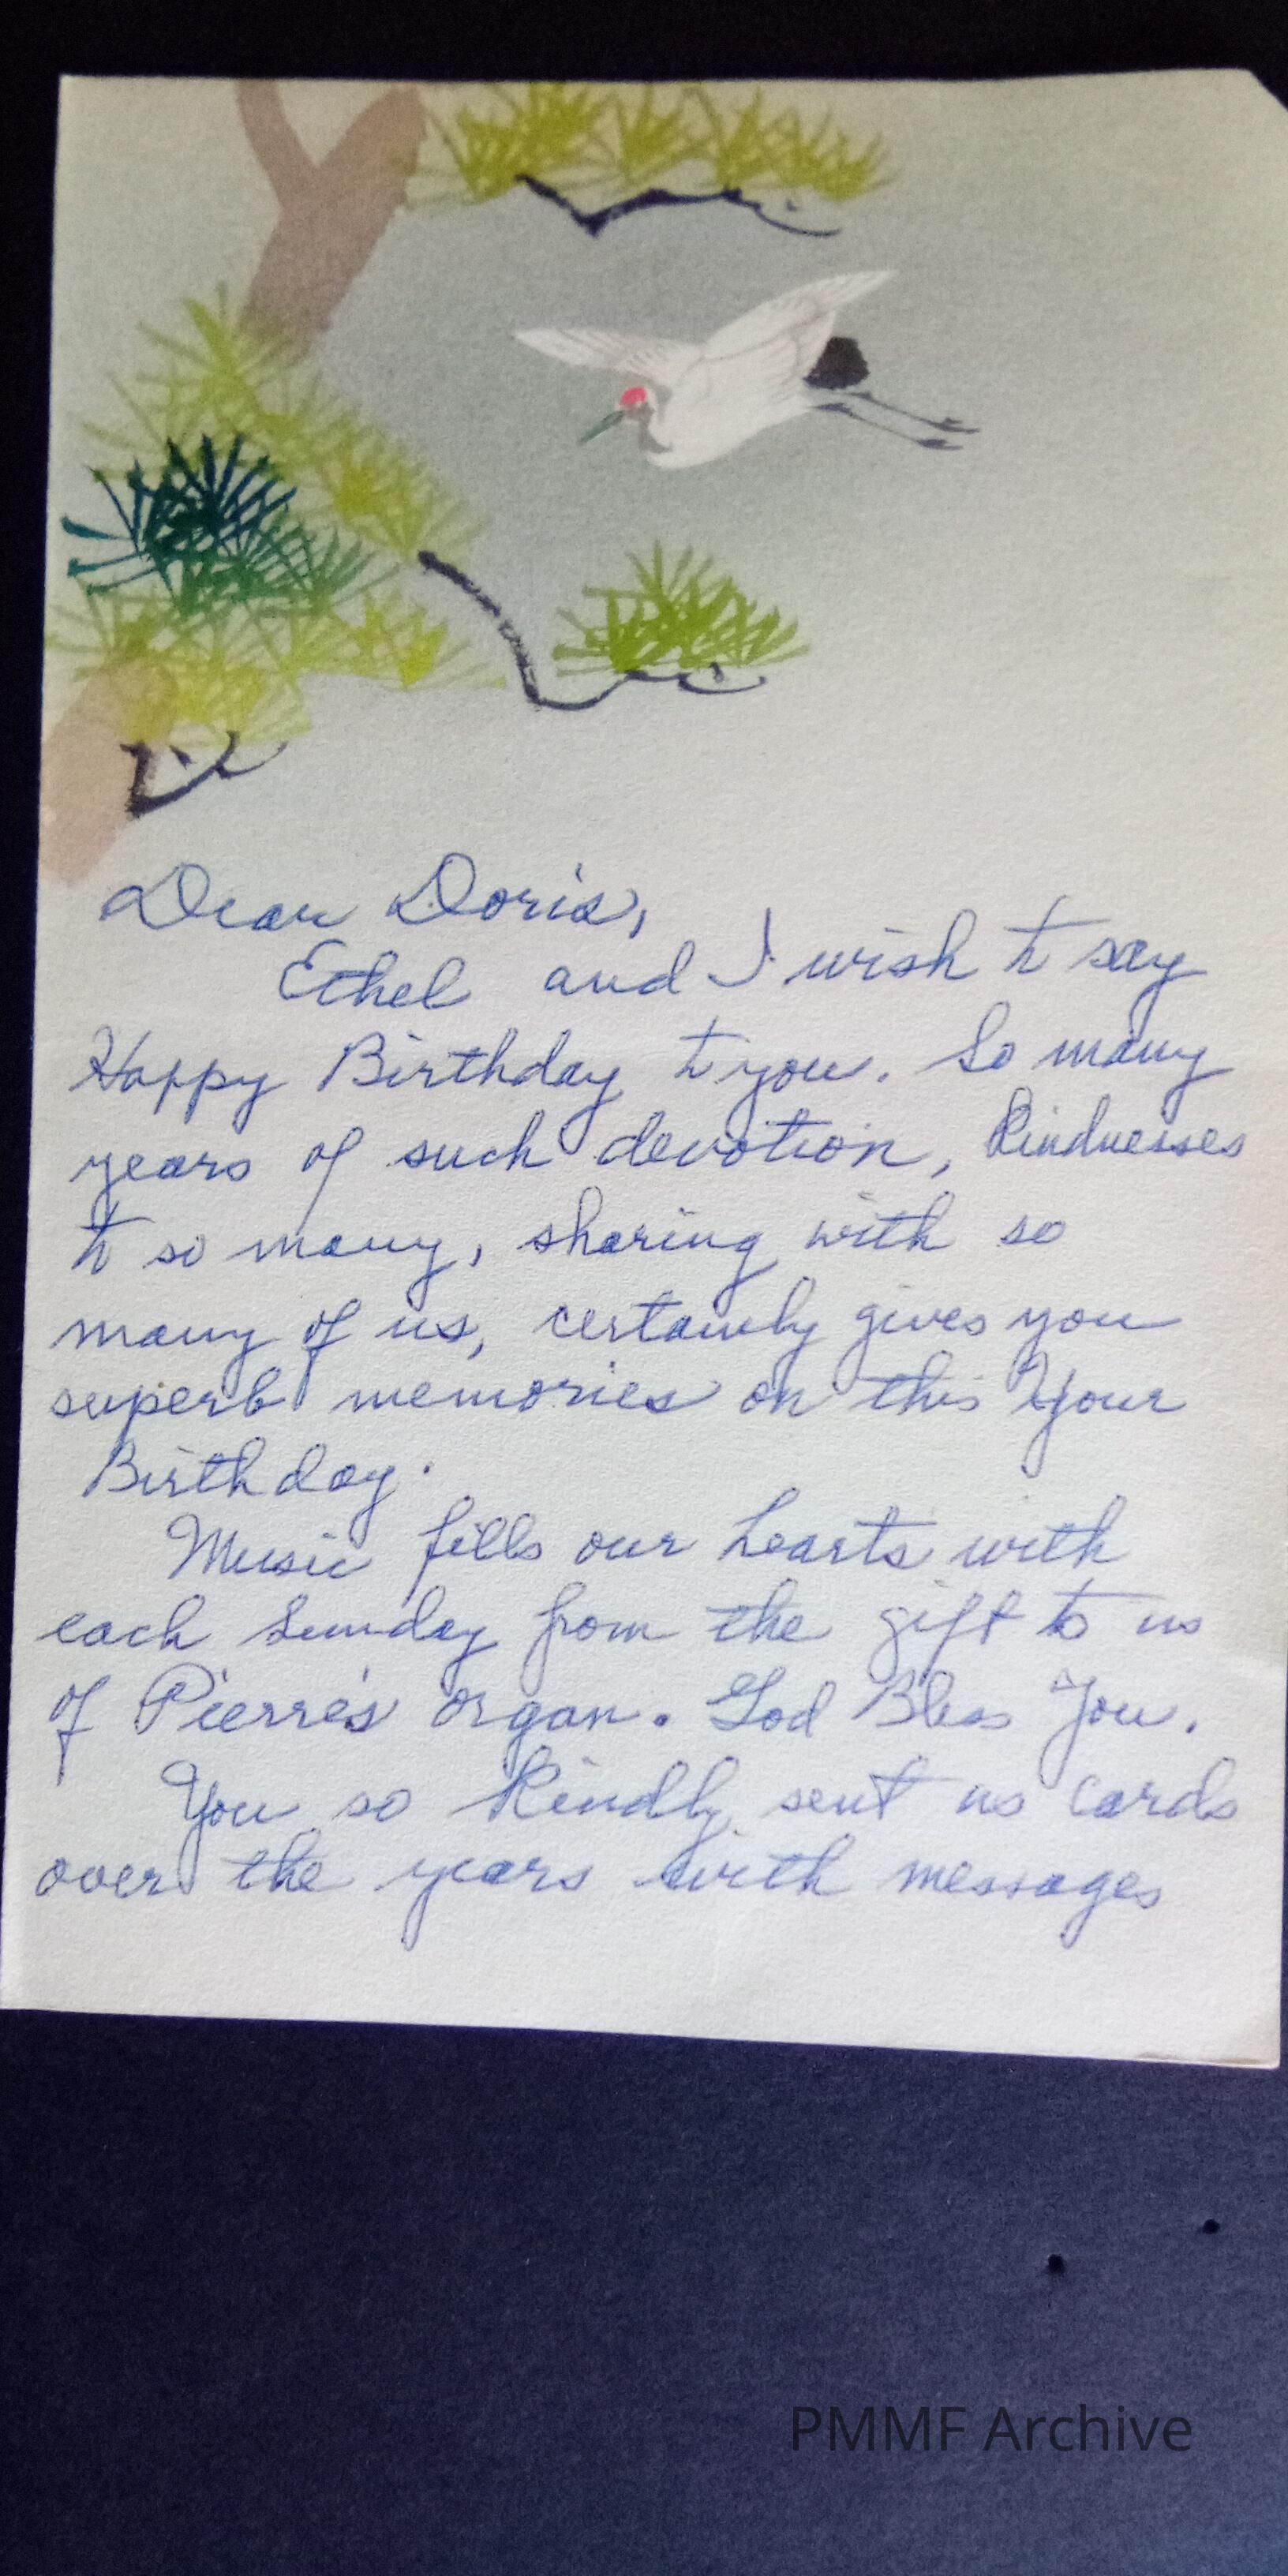 Dear Doris,
Ethel and I wish to say
Happy Birthday to you. So many
years of such devotion, Kindnesses
to so many, sharing with so
many of us, certainly gives you
superb memories on this Your
Birthday.
Music fills our hearts with
each Sunday from the gift to us
of Pierre's organ. God Bless You.
You so Kindly sent us cards
over the years with messages
PMMF Archive